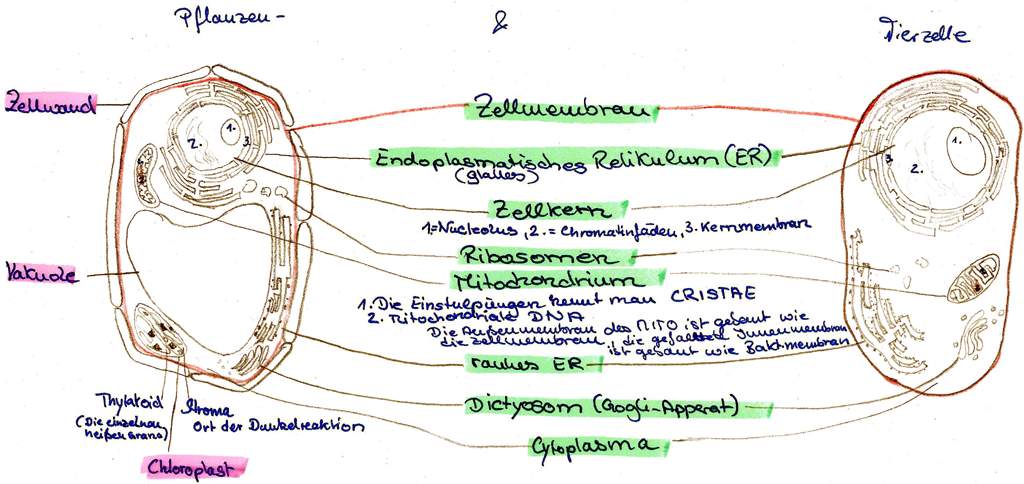 Pflanzen- & Tierzelle
Zellwand
Zellmembran
Endoplasmatisches Relikulum (ER)
(glattes)
Zellkern
1=Nucleolus, 2.= Chromatinfäden, 3. Kernmembran
Ribosomen
Vakuole
Mitochondrium
1. Die Einstülpungen nennt man CRISTAE
2. Mitochondriale DNA
Die Außenmembran des MITO ist gebaut wie
die Zellmembran, die gefaltete Innenmembran
ist gebaut wie Baktmembran
rauhes ER
Thylakoid
(Die einzelnen
heißen Grana)
Stroma
Ort der Dunkelreaktion
Dictyosom (Gogli-Apperat)
Cytoplasma
Chloroplast
1.
2.
3.
1.
2.
3.